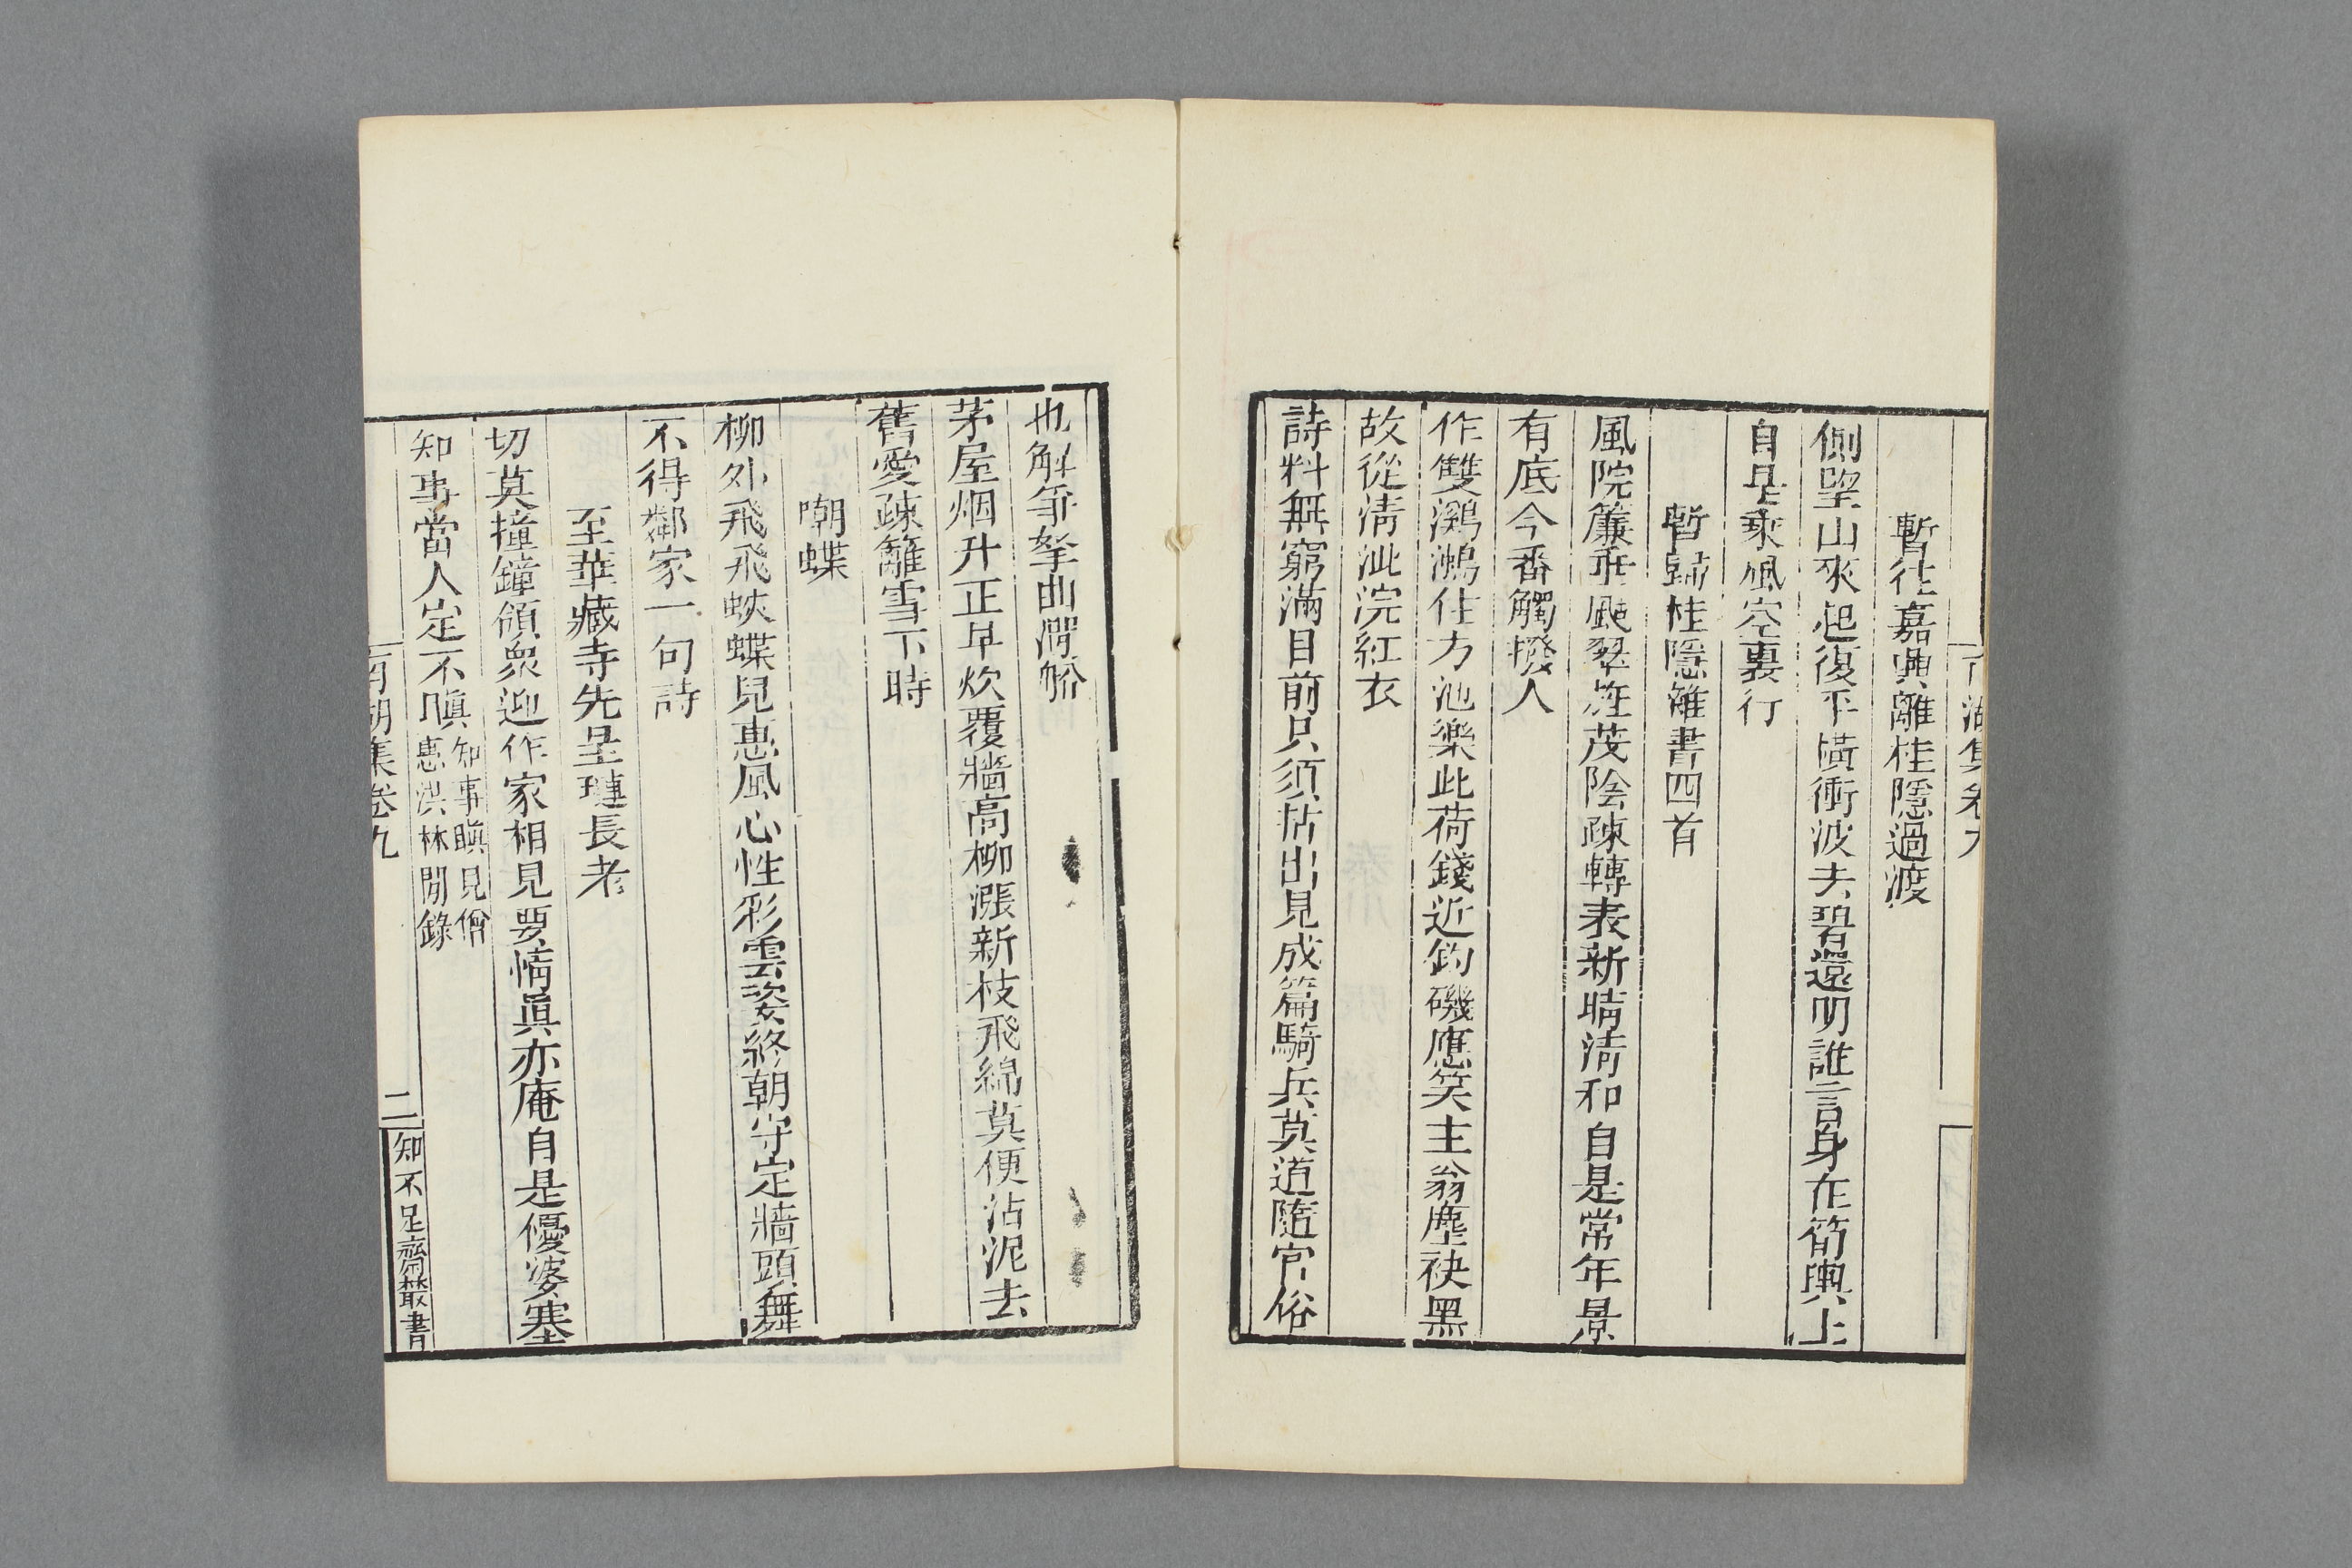 南湖集卷九
暫往嘉興離桂隱過渡
側望山來起復平橫衝波去碧還明誰言身在筍輿上
自是乘風空裏行
暫歸桂隱雜書四首
風院簾垂颭翠旌茂陰疎轉表新晴清和自是常年景
有底今番觸撥人
作雙鸂鶒住方池樂此荷錢近釣磯應笑主翁塵袂黑
故從清泚浣紅衣
詩料無窮滿目前只須拈出見成篇騎兵莫道隨官俗
也解笻拏曲澗
茅屋烟升正早炊覆牆高柳漲新枝飛綿莫便沾泥去
舊愛疎籬雪下時
嘲蝶
柳外飛飛蛺蝶兒惠風心性彩雲姿終朝守定牆頭舞
不得鄰家一句詩
至華藏寺先呈璉長老
切莫撞鐘領衆迎作家相見要情眞亦庵自是優婆塞
知事當人定不瞋知事瞋見僧
惠洪林間錄
南湖集卷九
二
知不足齋叢書